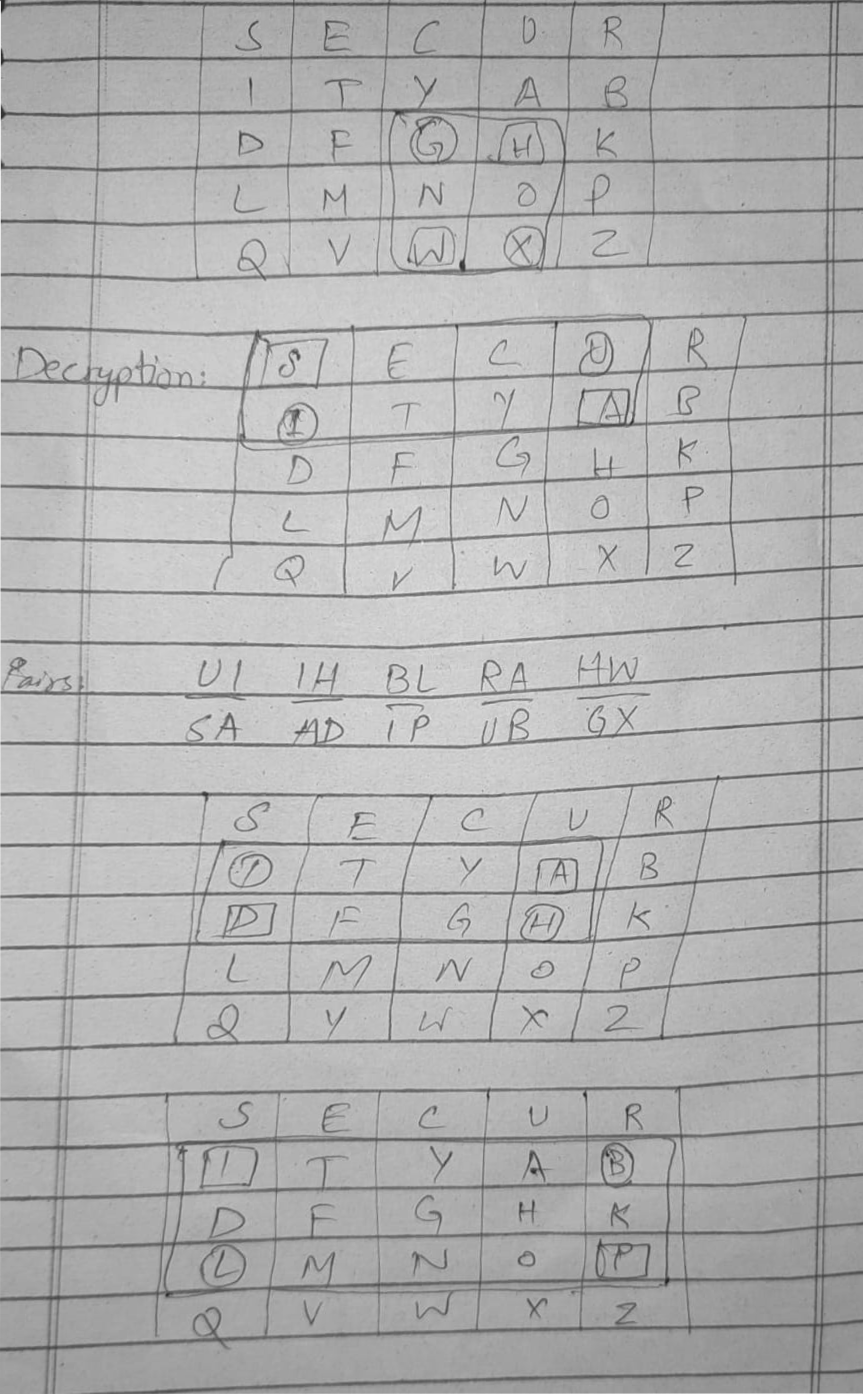 S E C U R
I T Y A B
D F G H K
L M N O P
Q V W X Z
Decryption:
S E C U R
I T Y A B
D F G H K
L M N O P
Q V W X Z
Pairs:
UI IH BL RA HW
SA AD IP UB GX
S E C U R
I T Y A B
D F G H K
L M N O P
Q V W X Z
S E C U R
I T Y A B
D F G H K
L M N O P
Q V W X Z